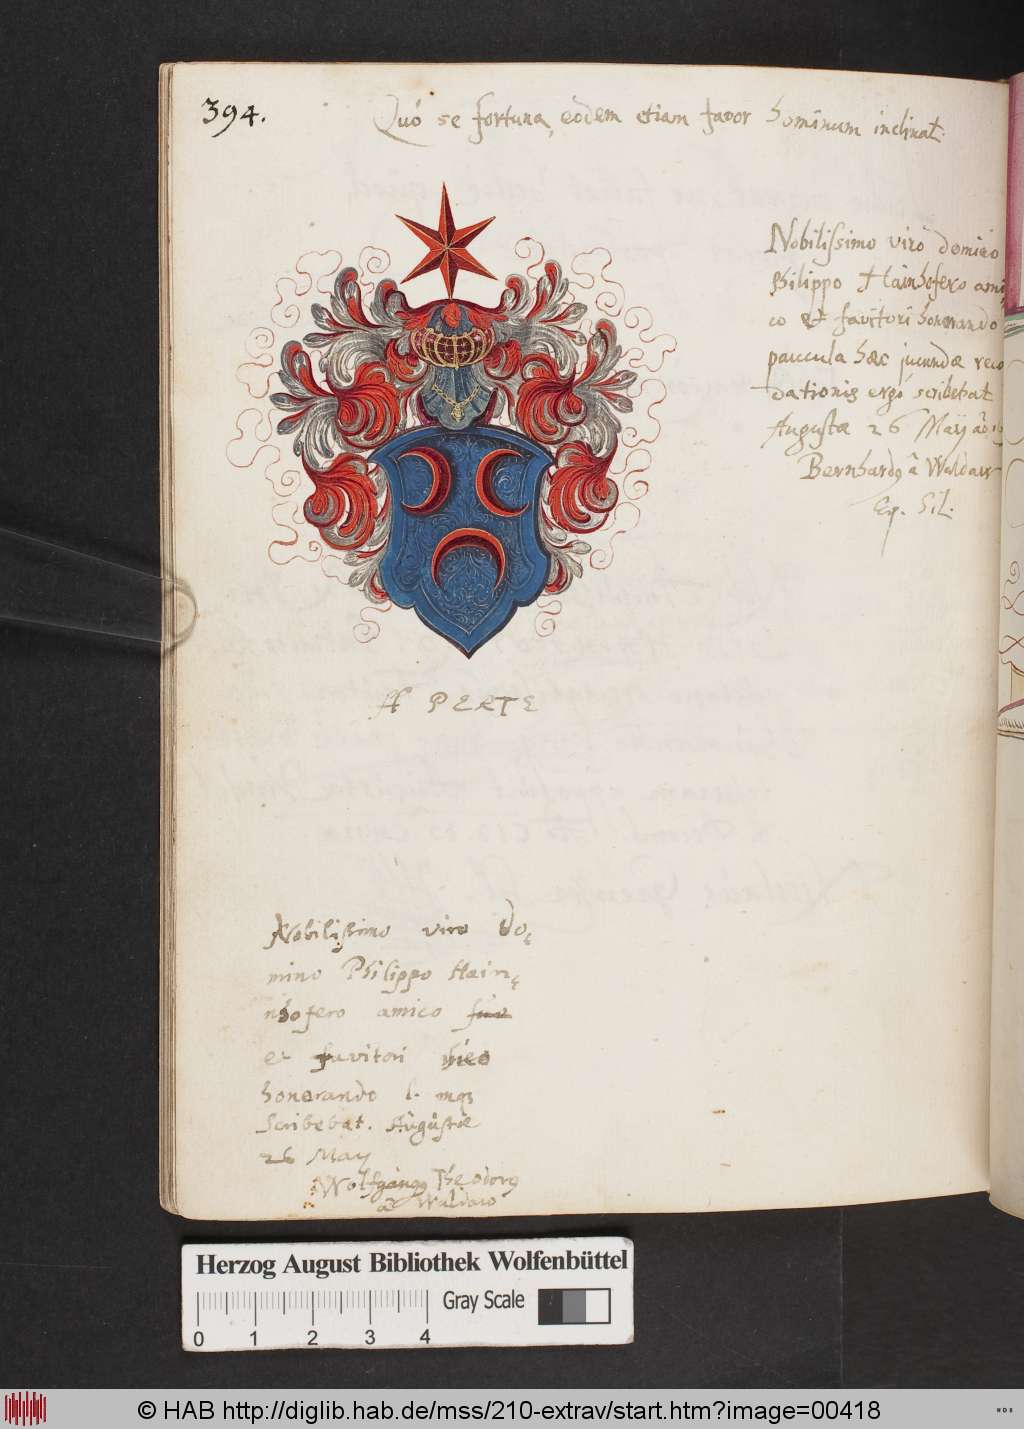 394.
Quó se fortuna, eódem etiam favor hominum inclinat.
Nobilissimo viro domino
Philippo Hainhofero ami,
co et favitori honorando
paucula hæc jucundæ reco
dationis ergó scribebat
Augustæ 26 Maÿ
Bernhardg â Waldaw
Eq. Sil.
APERTE
Nobilissimo viro Do,
mino Philippo Hain,
nhofero amico
et favitori
honorando l. mq
Scribebat. Augustæ
26 May
Wolfgangg Theodorg
a Waldaw
Herzog August Bibliothek Wolfenbüttel
Gray Scale
0 1 2 3 4
© HAB http://diglib.hab.de/mss/210-extrav/start.htm?image=00418